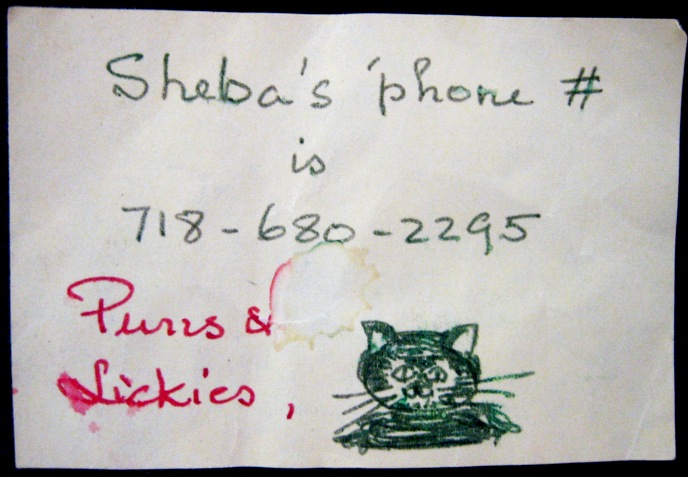 Sheba's 'phone #
is
718-680-2295
Purrs &
Lickies,